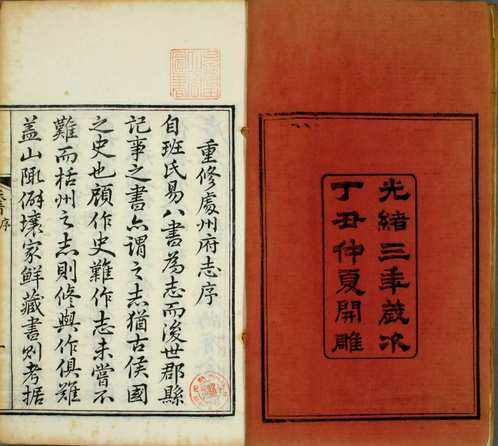 光緒三年歲次
丁丑仲夏開雕
重修處州府志序
自班氏易八書為志而後世郡縣
記事之書亦謂之志猶古侯國
之史也顧作史難作志未嘗不
難而栝州之志則修與作俱難
蓋山陬僻壤家鮮藏書則考据